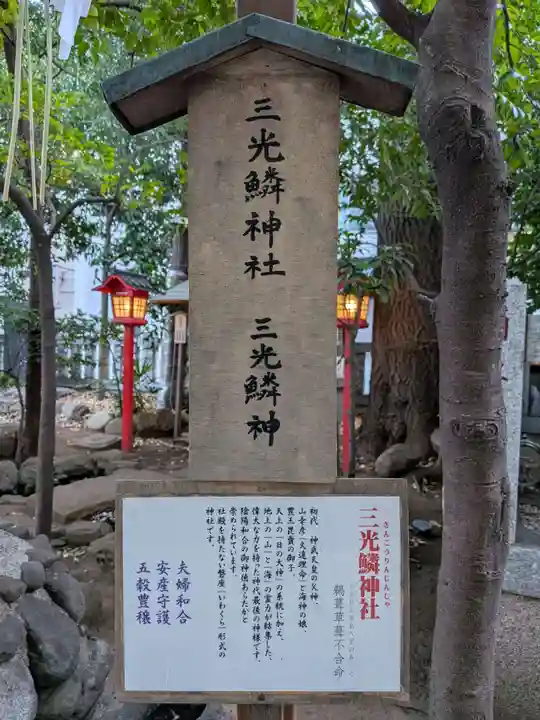 三光鱗神社　三光鱗神
さんこうりんじんじゃ
三光鱗神社
鵜葺草葺不合命
初代　神武天皇の父神、
山幸彦（火遠理命）と海神の娘
豊玉毘賣の御子
天上の「日の大神」の系統に加え、
地上の「山」と「海」の霊力が結集した、
偉大な力を持った神代最後の神様です。
陰陽和合の御神徳あらたかと
崇められています。
社殿を持たない磐座（いわくら）形式の
神社です。
夫婦和合
安産守護
五穀豊穣